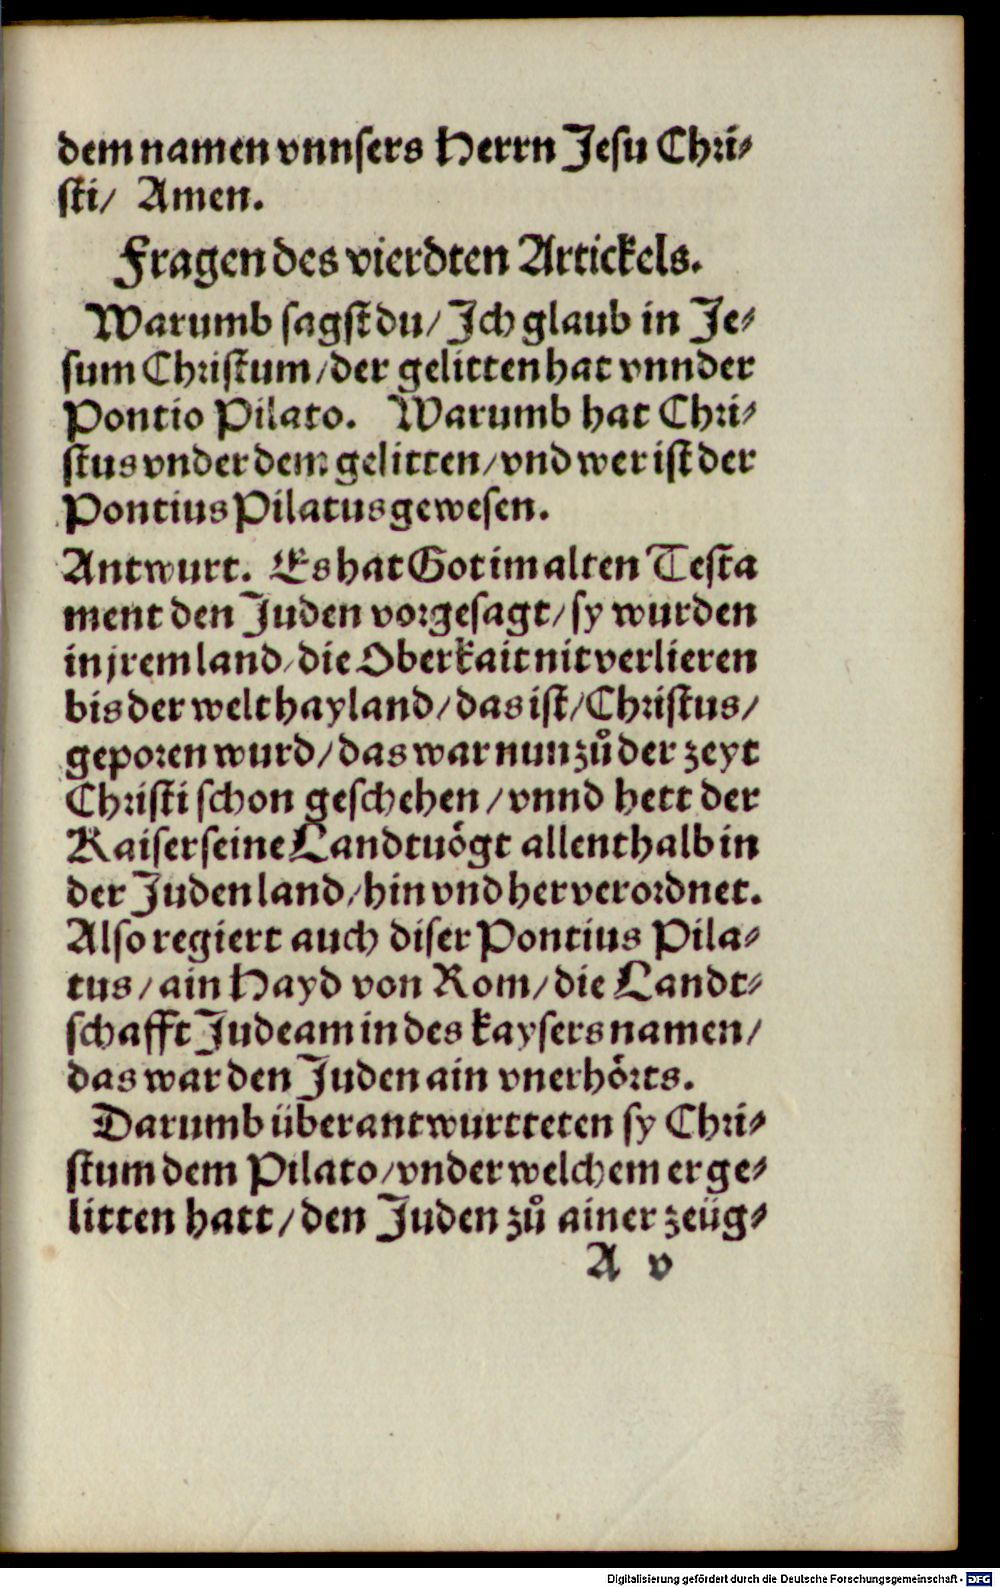 dem namen vnnsers Herrn Jesu Chri⸗
sti/ Amen.
Fragen des vierdten Artickels.
Warumb sagst du/ Jch glaub in Je⸗
sum Christum/der gelitten hat vnnder
Pontio Pilato. Warumb hat Chri⸗
stus vnder dem gelitten/vnd wer ist der
Pontius Pilatus gewesen.
Antwurt. Es hat Got im alten Testa
ment den Juden vorgesagt/sy wurden
in jrem land/die Oberkait nit verlieren
bis der welt hayland/das ist/Christus/
geporen wurd/das war nun zuͦ der zeyt
Christi schon geschehen/vnnd hett der
Kaiser seine Landtuögt allenthalb in
der Juden land/hin vnd her verordnet.
Also regiert auch diser Pontius Pila⸗
tus/ain Hayd von Rom/die Landt⸗
schafft Judeam in des kaysers namen/
das war den Juden ain vnerhörts.
Darumb überantwurtteten sy Chri⸗
stum dem Pilato/vnder welchem er ge⸗
litten hatt/den Juden zuͦ ainer zeüg⸗
A v
Digitalisierung gefördert durch die Deutsche Forschungsgemeinschaft - DFG